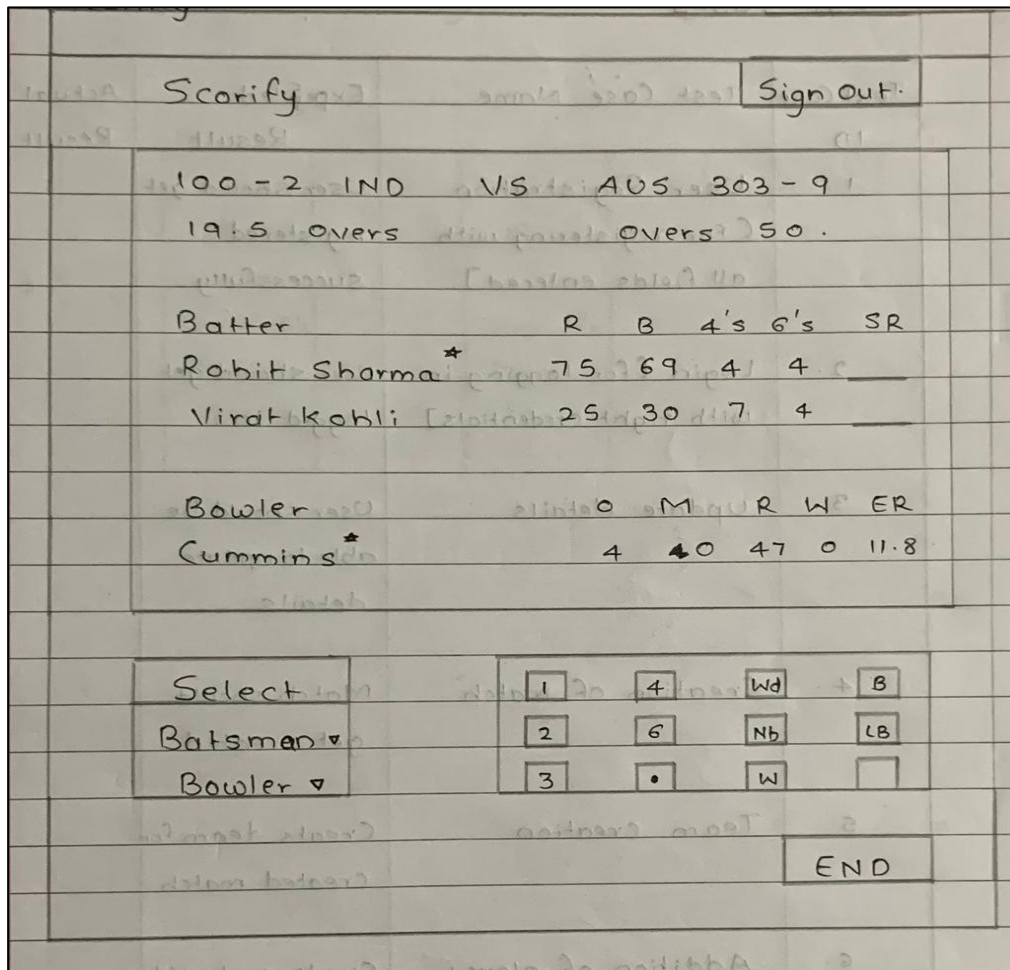 Scorify Sign Out.
100 - 2 IND VS AUS 303 - 9
19.5 overs overs 50.
Batter R B 4's 6's SR
Rohit Sharma* 75 69 4 4 __
Virat kohli 25 30 7 4 __
Bowler O M R W ER
Cummins* 4 0 47 0 11.8
Select 1 4 Wd B
Batsman ▿ 2 6 Nb LB
Bowler ▿ 3 • W
END